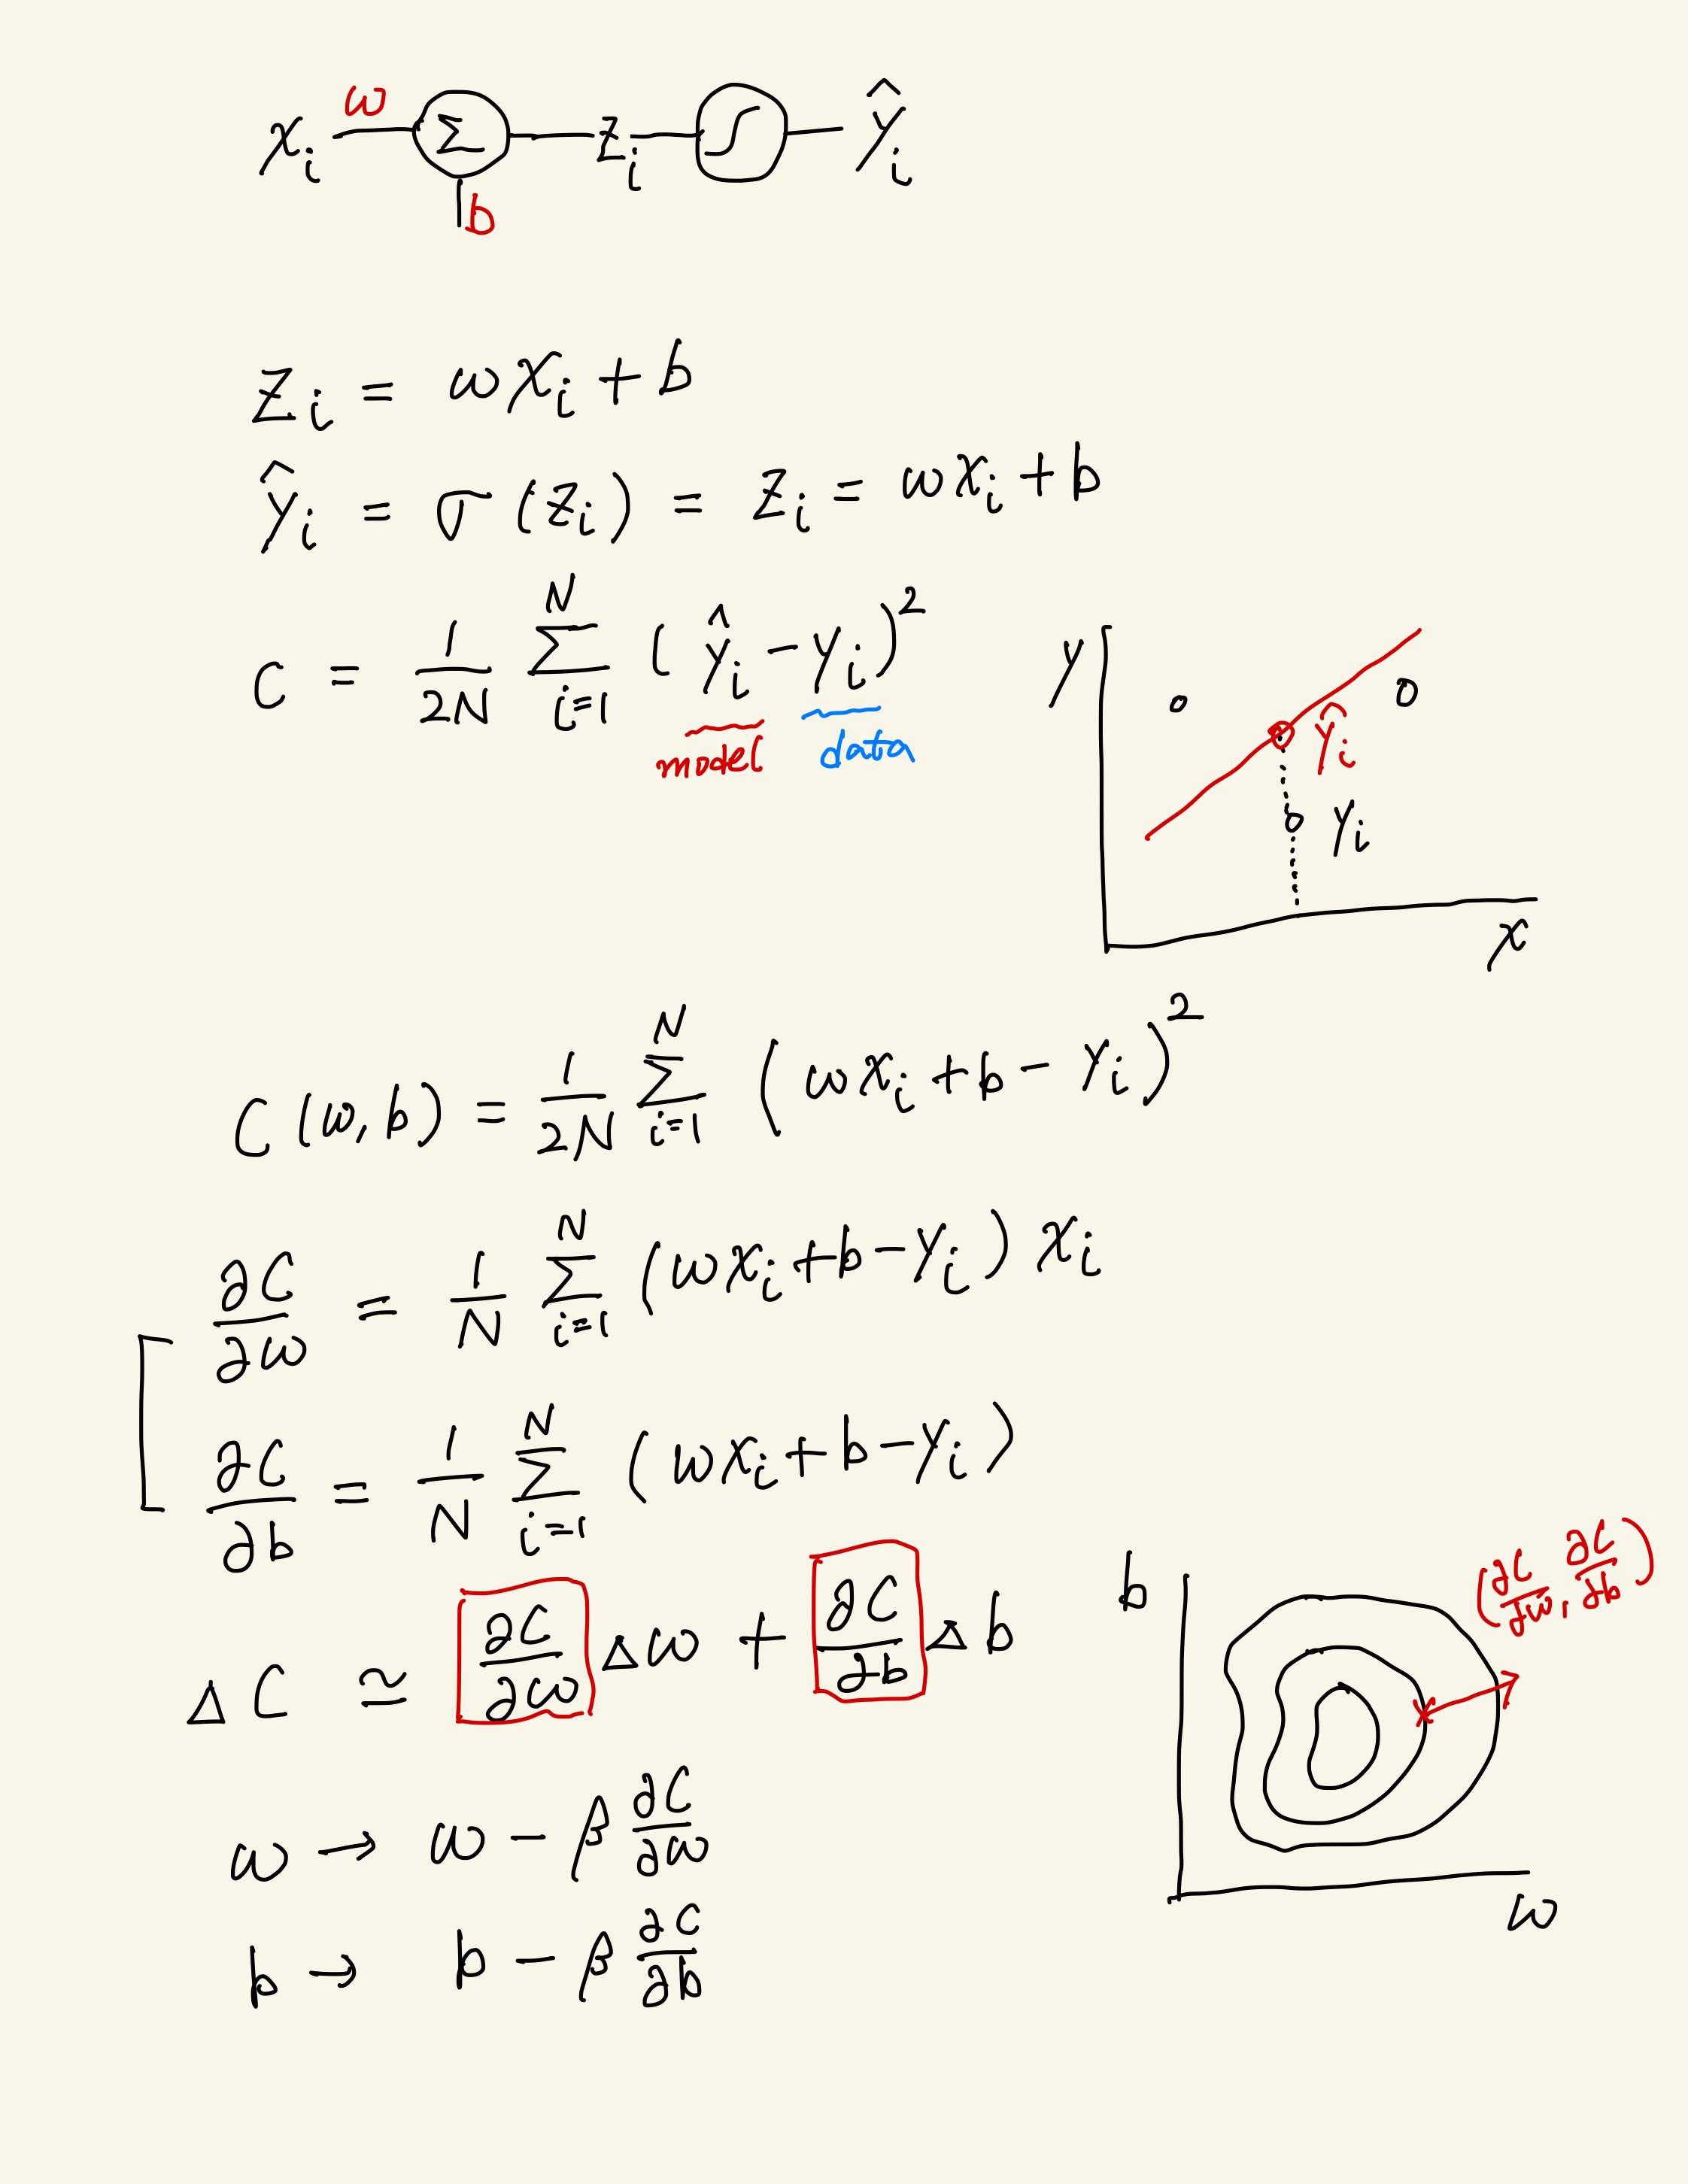 xᵢ ω Σ zᵢ ∫ ŷᵢ
b
zᵢ = ωxᵢ + b
ŷᵢ = σ(zᵢ) = zᵢ = ωxᵢ + b
C = 1/2N Σ_{i=1}^{N} (ŷᵢ − yᵢ)²
model data
y
ŷᵢ
yᵢ
x
C(ω,b) = 1/2N Σ_{i=1}^{N} (ωxᵢ + b − yᵢ)²
∂C/∂ω = 1/N Σ_{i=1}^{N} (ωxᵢ + b − yᵢ) xᵢ
∂C/∂b = 1/N Σ_{i=1}^{N} (ωxᵢ + b − yᵢ)
ΔC ≃ ∂C/∂ω Δω + ∂C/∂b Δb
ω → ω − β ∂C/∂ω
b → b − β ∂C/∂b
b
(∂C/∂ω, ∂C/∂b)
ω